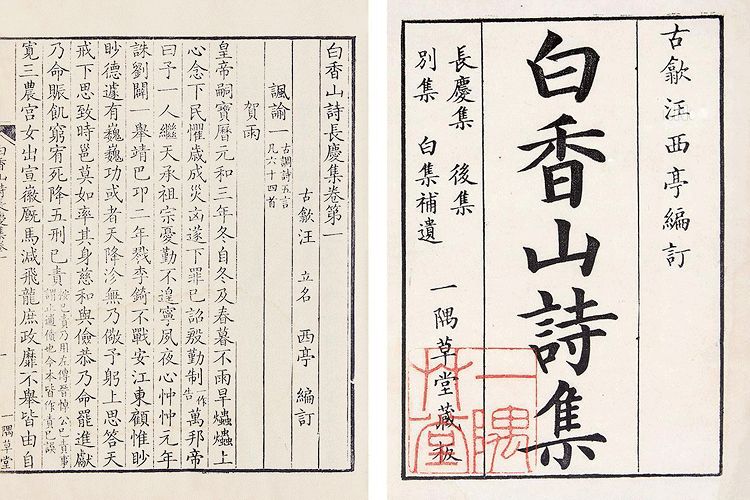 古歙汪西亭編訂
白香山詩集
長慶集 後集
別集 白集補遺
一隅草堂藏板
一隅
草堂
白香山詩長慶集卷第一
古歙汪 立名 西亭 編訂
諷諭一 古調詩五言 凡六十四首
賀雨
皇帝嗣寶曆元和三年冬自冬及春暮不雨旱爞爞上
心念下民懼歲成災凶遂下罪已詔殷勤制一作告萬邦帝
曰予一人繼天承祖宗憂勤不遑寧夙夜心忡忡元年
誅劉闢一舉靖巴卭二年戮李錡不戰安江東顧惟眇
眇德遽有巍巍功或者天降沴無乃儆予躬上思答天
戒下思致時邕莫如率其身慈和與儉恭乃命罷進獻
乃命賑飢窮宥死降五刑已責已責乃用左傳晉悼公已責事謂止逋債也今本皆作責已誤
寬三農宮女出宣徽厩馬減飛龍庶政靡不舉皆由自
白香山詩長慶集卷一
一隅草堂